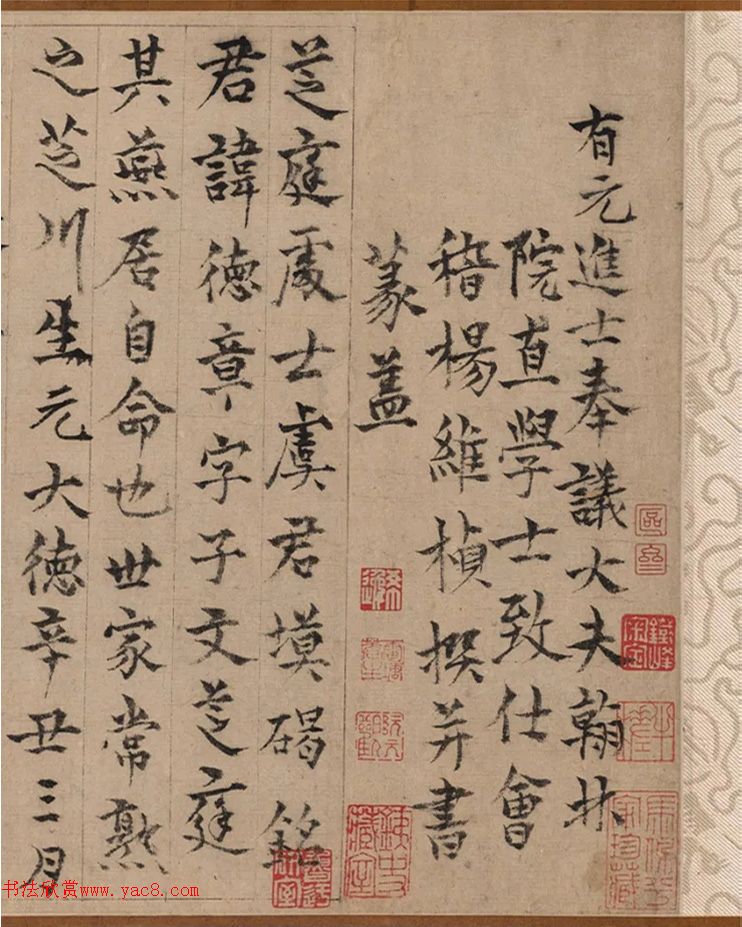 有元進士奉議大夫翰林
院直學士致仕會
稽楊維楨撰并書
篆蓋
芝庭處士虞君墓碣銘
君諱德章字子文芝庭
其燕居自命也世家常熟
之芝川生元大德辛丑三月
书法欣赏www.yac8.com